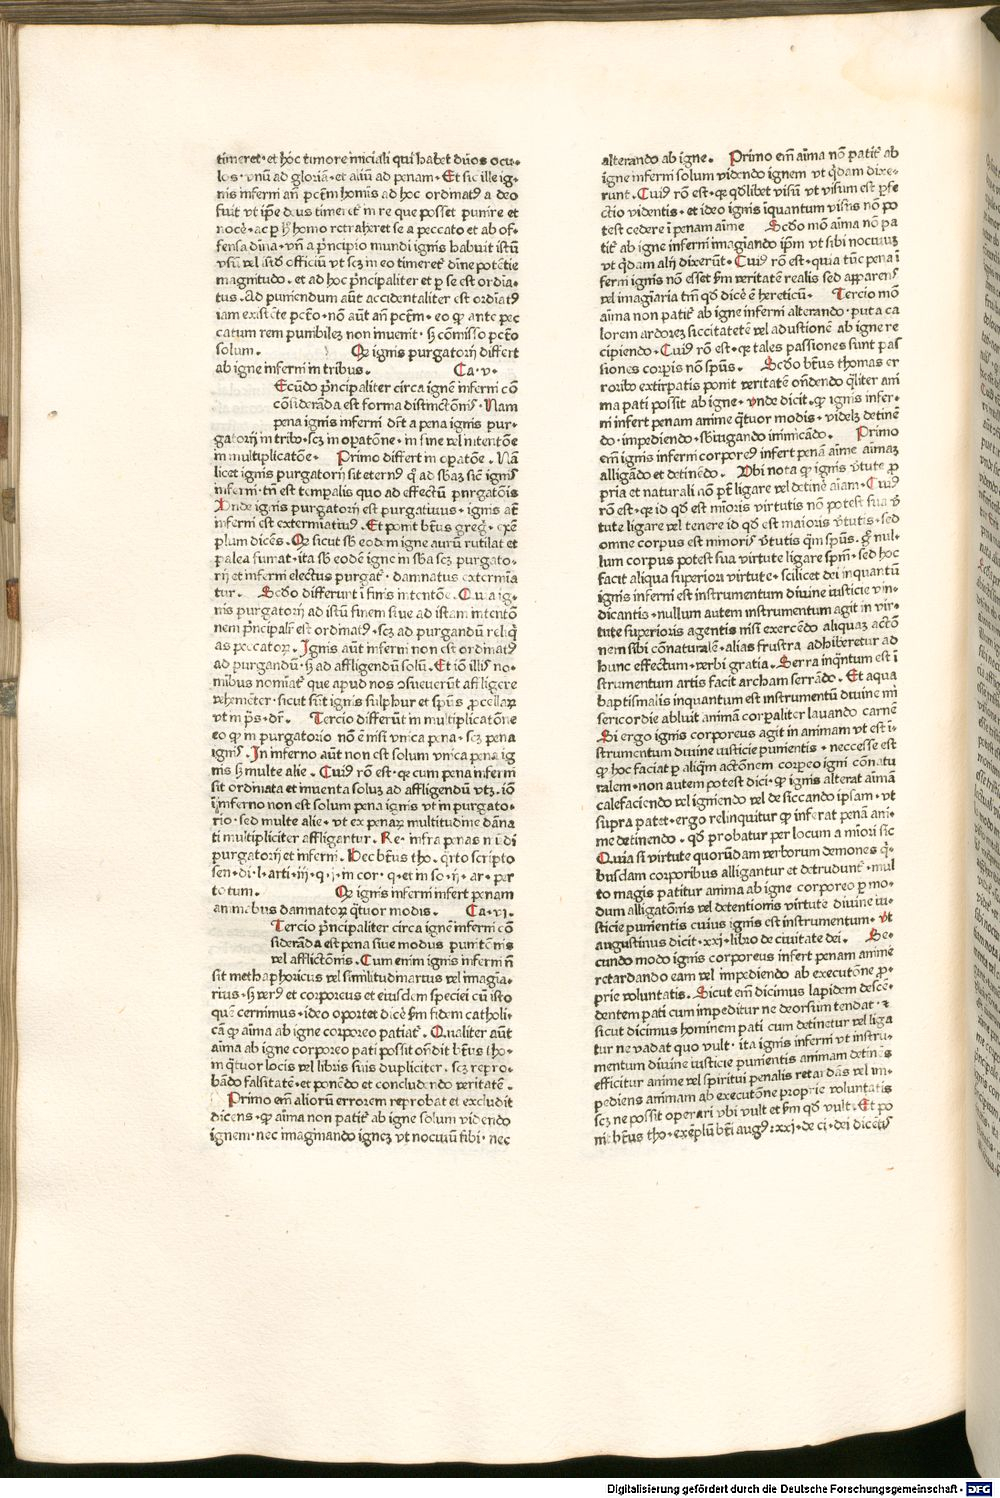 timeret·et hoc timore iniciali qui habet duos ocu-
los·vnū ad gloriā·et aliū ad penam·Et sic ille ig-
nis inferni an̄ pctm̄ hoīnis ad hoc ordinatꝰ a deo
fuit vt ip̄e deus timeret᷑ in re que posset punire et
nocē·ac ꝑ hꝰ homo retraheret se a peccato et ab of-
fensa diīna·vn̄ a pͥncipio mundi ignis habuit istū
vsū vel istꝰ officiū vt scꝫ in eo timeret᷑ diīne potētie
magnitudo·et ad hoc pͥncipaliter et ꝑ se est ordīa-
tus·Ad puniendum aūt accidentaliter est ordīatꝰ
iam existēte pctō·nō aūt an̄ pctm̄·eo ꝙ ante pec
catum rem punibilez non inuenit·sꝫ cōmisso pctō
solum. Qꝫ ignis purgatorij differt
ab igne inferni in tribus. Ca·v·
Ecūdo pͥncipaliter circa ignē inferni cō
cōsiderāda est forma distinctōis·Nam
pena ignis inferni dr̄t a pena ignis pur-
gatorij in tribꝰ·scꝫ in oꝑatōne·in fine vel intentōe
in multiplicatōe· Primo differt in oꝑatōe·Nā
licet ignis purgatorij sit eternꝰ qͥ ad sbāz sic̄ ignis
inferni·tn̄ est temꝑalis quo ad effectū purgatōis
Vnde ignis purgatorij est purgatiuus·ignis at̄
inferni est exterminatiuꝰ·Et ponit btūs greḡ·exē
plum dicēs·Qꝫ sicut sb̄ eodem igne aurū rutilat et
palea fumat·ita sb̄ eodē igne in sbā scꝫ purgato-
rij et inferni electus purgat᷑·damnatus extermīa
tur. Scd̄o differunt ī finis intentōe·Quia ig-
nis purgatorij ad istū finem siue ad istam intentō
nem pͥncipalr̄ est ordinatꝰ·scꝫ ad purgandū reliqͥ
as peccatoꝝ·Ignis aūt inferni non est ordinatꝰ
ad purgandū·sꝫ ad affligendū solū·Et iō illis no-
minibus nominat᷑ que apud nos ꝯsueuerūt affligere
vehemēter·sicut sūt ignis sulphur et spūs ꝓcellaꝝ
vt in ps̄·dr̄. Tercio differūt in multiplicatōne
eo ꝙ in purgatorio nō ē nisi vnica pena·scꝫ pena
ignis·In inferno aūt non est solum vnica pena ig
nis sꝫ multe alie·Cuiꝰ rō est·qꝛ cum pena inferni
sit ordinata et inuenta soluꝫ ad affligendū vtꝫ·iō
ī inferno non est solum pena ignis vt in purgato-
rio·sed multe alie·vt ex penaꝝ multitudine dāna
ti multipliciter affligantur·Re·infra penas
purgatorij et inferni·Hec btūs tho·qͣrto scripto
sen·di·l·arti·iij·q·j·in cor·q·et in so·ij·ar·per
totum. Qꝫ ignis inferni infert penam
animabus damnatoꝝ qͣtuor modis. Ca·vi·
Tercio pͥncipaliter circa ignē inferni cō
siderāda est pena siue modus punitōnis
vel afflictōnis·Cum enim ignis inferni n̄
sit methaphoricus vel similitudinarius vel imagīa-
rius·sꝫ verꝰ et corporeus et eiusdem speciei cū isto
quē cernimus·ideo oportet dicē ẜm fidem catholi-
cā ꝙ aīma ab igne corporeo patiat᷑·Qualiter aūt
aīma ab igne corporeo pati possit on̄dit btūs tho·
in qͣtuor locis vel libris suis dupliciter·scꝫ repro-
bādo falsitatē·et ponēdo et concludendo veritatē.
Primo em̄ aliorū errorem reprobat et excludit
dicens·ꝙ aīma non patit᷑ ab igne solum videndo
ignem·nec imaginando ignez vt nocuiū sibi·nec
alterando ab igne. Primo em̄ aīma nō patit᷑ ab
igne inferni solum videndo ignem vt qͥdam dixe-
runt·Cuiꝰ rō est·qꝛ qd̄libet visū vt visum est ꝑfe
ctio videntis·et ideo ignis inquantum visus nō po
test cedere ī penam aīme Scd̄o mō aīma nō pa
tit᷑ ab igne inferni imagīando ip̄m vt sibi nocuuꝫ
vt qͥdam alij dixerūt·Cuiꝰ rō est·quia tūc pena ī
ferni ignis nō esset ẜm veritatē realis sed apparens
vel imagīaria tm̄ qd̄ dicē ē hereticū· Tercio mō
aīma non patit᷑ ab igne inferni alterando·puta ca
lorem ardoreꝫ siccitatetē vel adustionē ab igne re
cipiendo·Cuiꝰ rō est·qꝛ tales passiones sunt pas
siones corꝑis nō spūs. Scd̄o btūs thomas er
roribꝰ extirpatis ponit veritatē on̄dendo qͣliter ani
ma pati possit ab igne·vnde dicit·ꝙ ignis infer-
ni infert penam anime qͣtuor modis·videlꝫ detinē
do·impediendo·sb̄iugando inimicādo. Primo
em̄ ignis inferni corporeꝰ infert penā aīme aīmaꝫ
alligādo et detinēdo. Vbi nota ꝙ ignis v̄tute ꝓ
pria et naturali nō pt̄ ligare vel detinē aīam·Cuiꝰ
rō est·qꝛ id qd̄ est mīoris virtutis nō potest sua v̄
tute ligare vel tenere id qd̄ est maioris v̄tutis·sed
omne corpus est minoris v̄tutis qͣm spūs·gͦ nul-
lum corpus potest sua virtute ligare spm̄·sed hoc
facit aliqua superiori virtute·scilicet dei inquantū
ignis inferni est instrumentum diuine iusticie vin-
dicantis·nullum autem instrumentum agit in vir-
tute superioris agentis nisi exercēdo aliquaꝫ actō
nem sibi cōnaturalē·alias frustra adhiberetur ad
hunc effectum·verbi gratia·Serra inqͣntum est ī
strumentum artis facit archam serrādo·Et aqua
baptismalis inquantum est instrumentū diuine mi
sericordie abluit animā corꝑaliter lauando carnē
Si ergo ignis corporeus agit in animam vt est ī-
strumentum diuine iusticie punientis·neccesse est
ꝙ hoc faciat ꝑ aliqͣm actōnem corꝑeo igni cōnatu
ralem·non autem potest dici·ꝙ ignis alterat aīmā
calefaciendo vel igniendo vel desiccando ipsam·vt
supra patet·ergo relinquitur ꝙ inferat penā ani-
me detinendo·qd̄ probatur per locum a mīori sic
Quia si virtute quorūdam verborum demones qͥ-
busdam corporibus alligantur et detrudunt᷑·mul
to magis patitur anima ab igne corporeo ꝑ mo-
dum alligatōnis vel detentionis virtute diuine iu-
sticie punientis cuius ignis est instrumentum·vt
augustinus dicit·xxj·libro de ciuitate dei. Se-
cundo modo ignis corporeus infert penam anime
retardando eam vel impediendo ab executōne ꝓ-
prie voluntatis·Sicut em̄ dicimus lapidem descē-
dentem pati cum impeditur ne deorsum tendat·⁊
sicut dicimus hominem pati cum detinetur vel liga
tur ne vadat quo vult·ita ignis inferni vt instru-
mentum diuine iusticie punientis animam detinēs
efficitur anime vel spiritui penalis retardās vel im-
pediens animam ab executōne proprie voluntatis
scꝫ ne possit operari vbi vult et ẜm qd̄ vult·Et po
nit btūs tho·exēplū bti augꝰ·xxj·de ci·dei dicētis
Digitalisierung gefördert durch die Deutsche Forschungsgemeinschaft - DFG